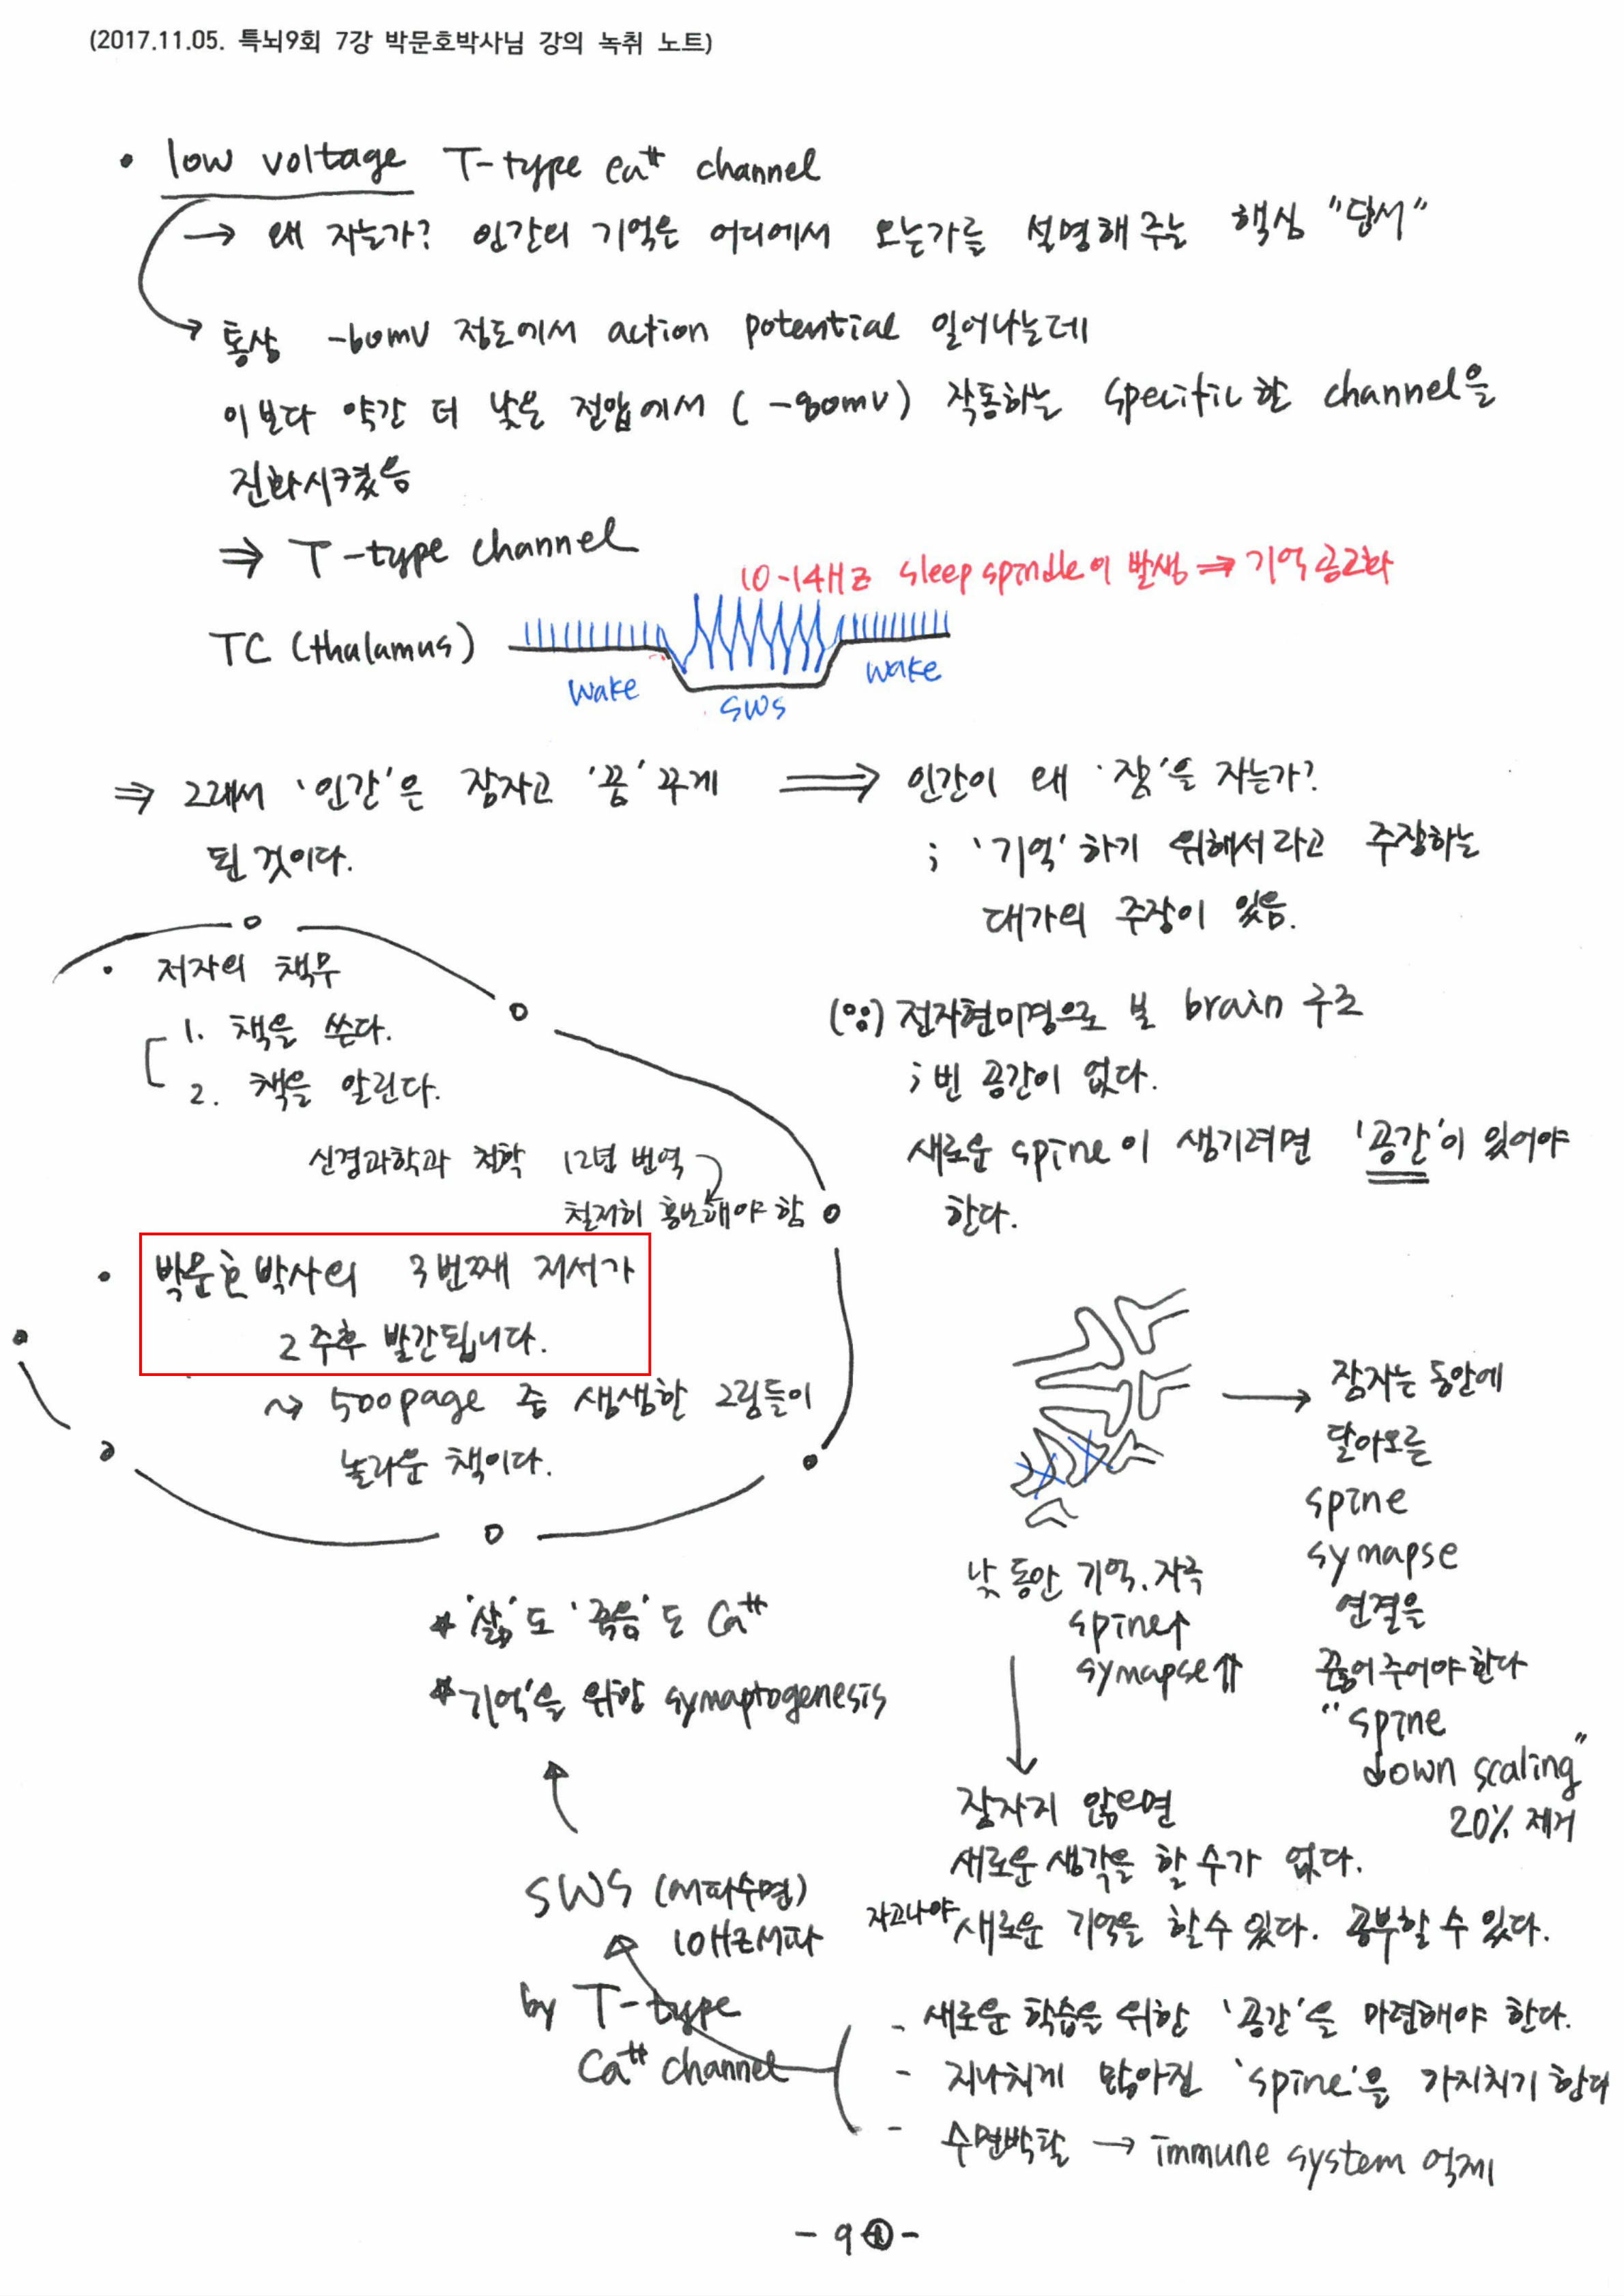 (2017.11.05. 특뇌9회 7강 박문호박사님 강의 녹취 노트)
• low voltage T-type Ca⧺ channel
→ 왜 자는가? 인간의 기억은 어디에서 오는가를 설명해주는 핵심 "단서"
→ 통상 -60mV 정도에서 action potential 일어나는데
이보다 약간 더 낮은 전압에서 (-80mV) 작동하는 specific한 channel을
진화시켰음
⇒ T-type channel
10-14HZ sleep spindle이 발생 ⇒ 기억 공고화
TC (thalamus)
wake
SWS
wake
⇒ 그래서 '인간'은 잠자고 '꿈' 꾸게
된 것이다.
⇒ 인간이 왜 '잠'을 자는가?
; '기억'하기 위해서라고 주장하는
대가의 주장이 있음.
• 저자의 책무
1. 책을 쓴다.
2. 책을 알린다.
신경과학과 철학 12년 번역
철저히 홍보해야 함
• 박문호박사의 3번째 저서가
2주후 발간됩니다.
~> 500page 중 생생한 그림들이
놀라운 책이다.
전자현미경으로 본 brain 구조
; 빈 공간이 없다.
새로운 spine이 생기려면 '공간'이 있어야
한다.
→ 잠자는 동안에
달아오른
spine
symapse
연결을
끊어주어야한다
"spine
down scaling"
20% 제거
낮 동안 기억, 자극
spine↑
symapse⇈
잠자지 않으면
새로운 생각을 할 수가 없다.
자고나야 새로운 기억을 할 수 있다. 공부할 수 있다.
* '삶'도 '죽음'도 Ca⧺
* '기억'을 위한 synaptogenesis
SWS (서파수면)
10HZ서파
by T-type
Ca⧺ channel
- 새로운 학습을 위한 '공간'을 마련해야 한다.
- 지나치게 많아진 'spine'을 가지치기 한다
- 수면박탈 → immune system 억제
- 9 -